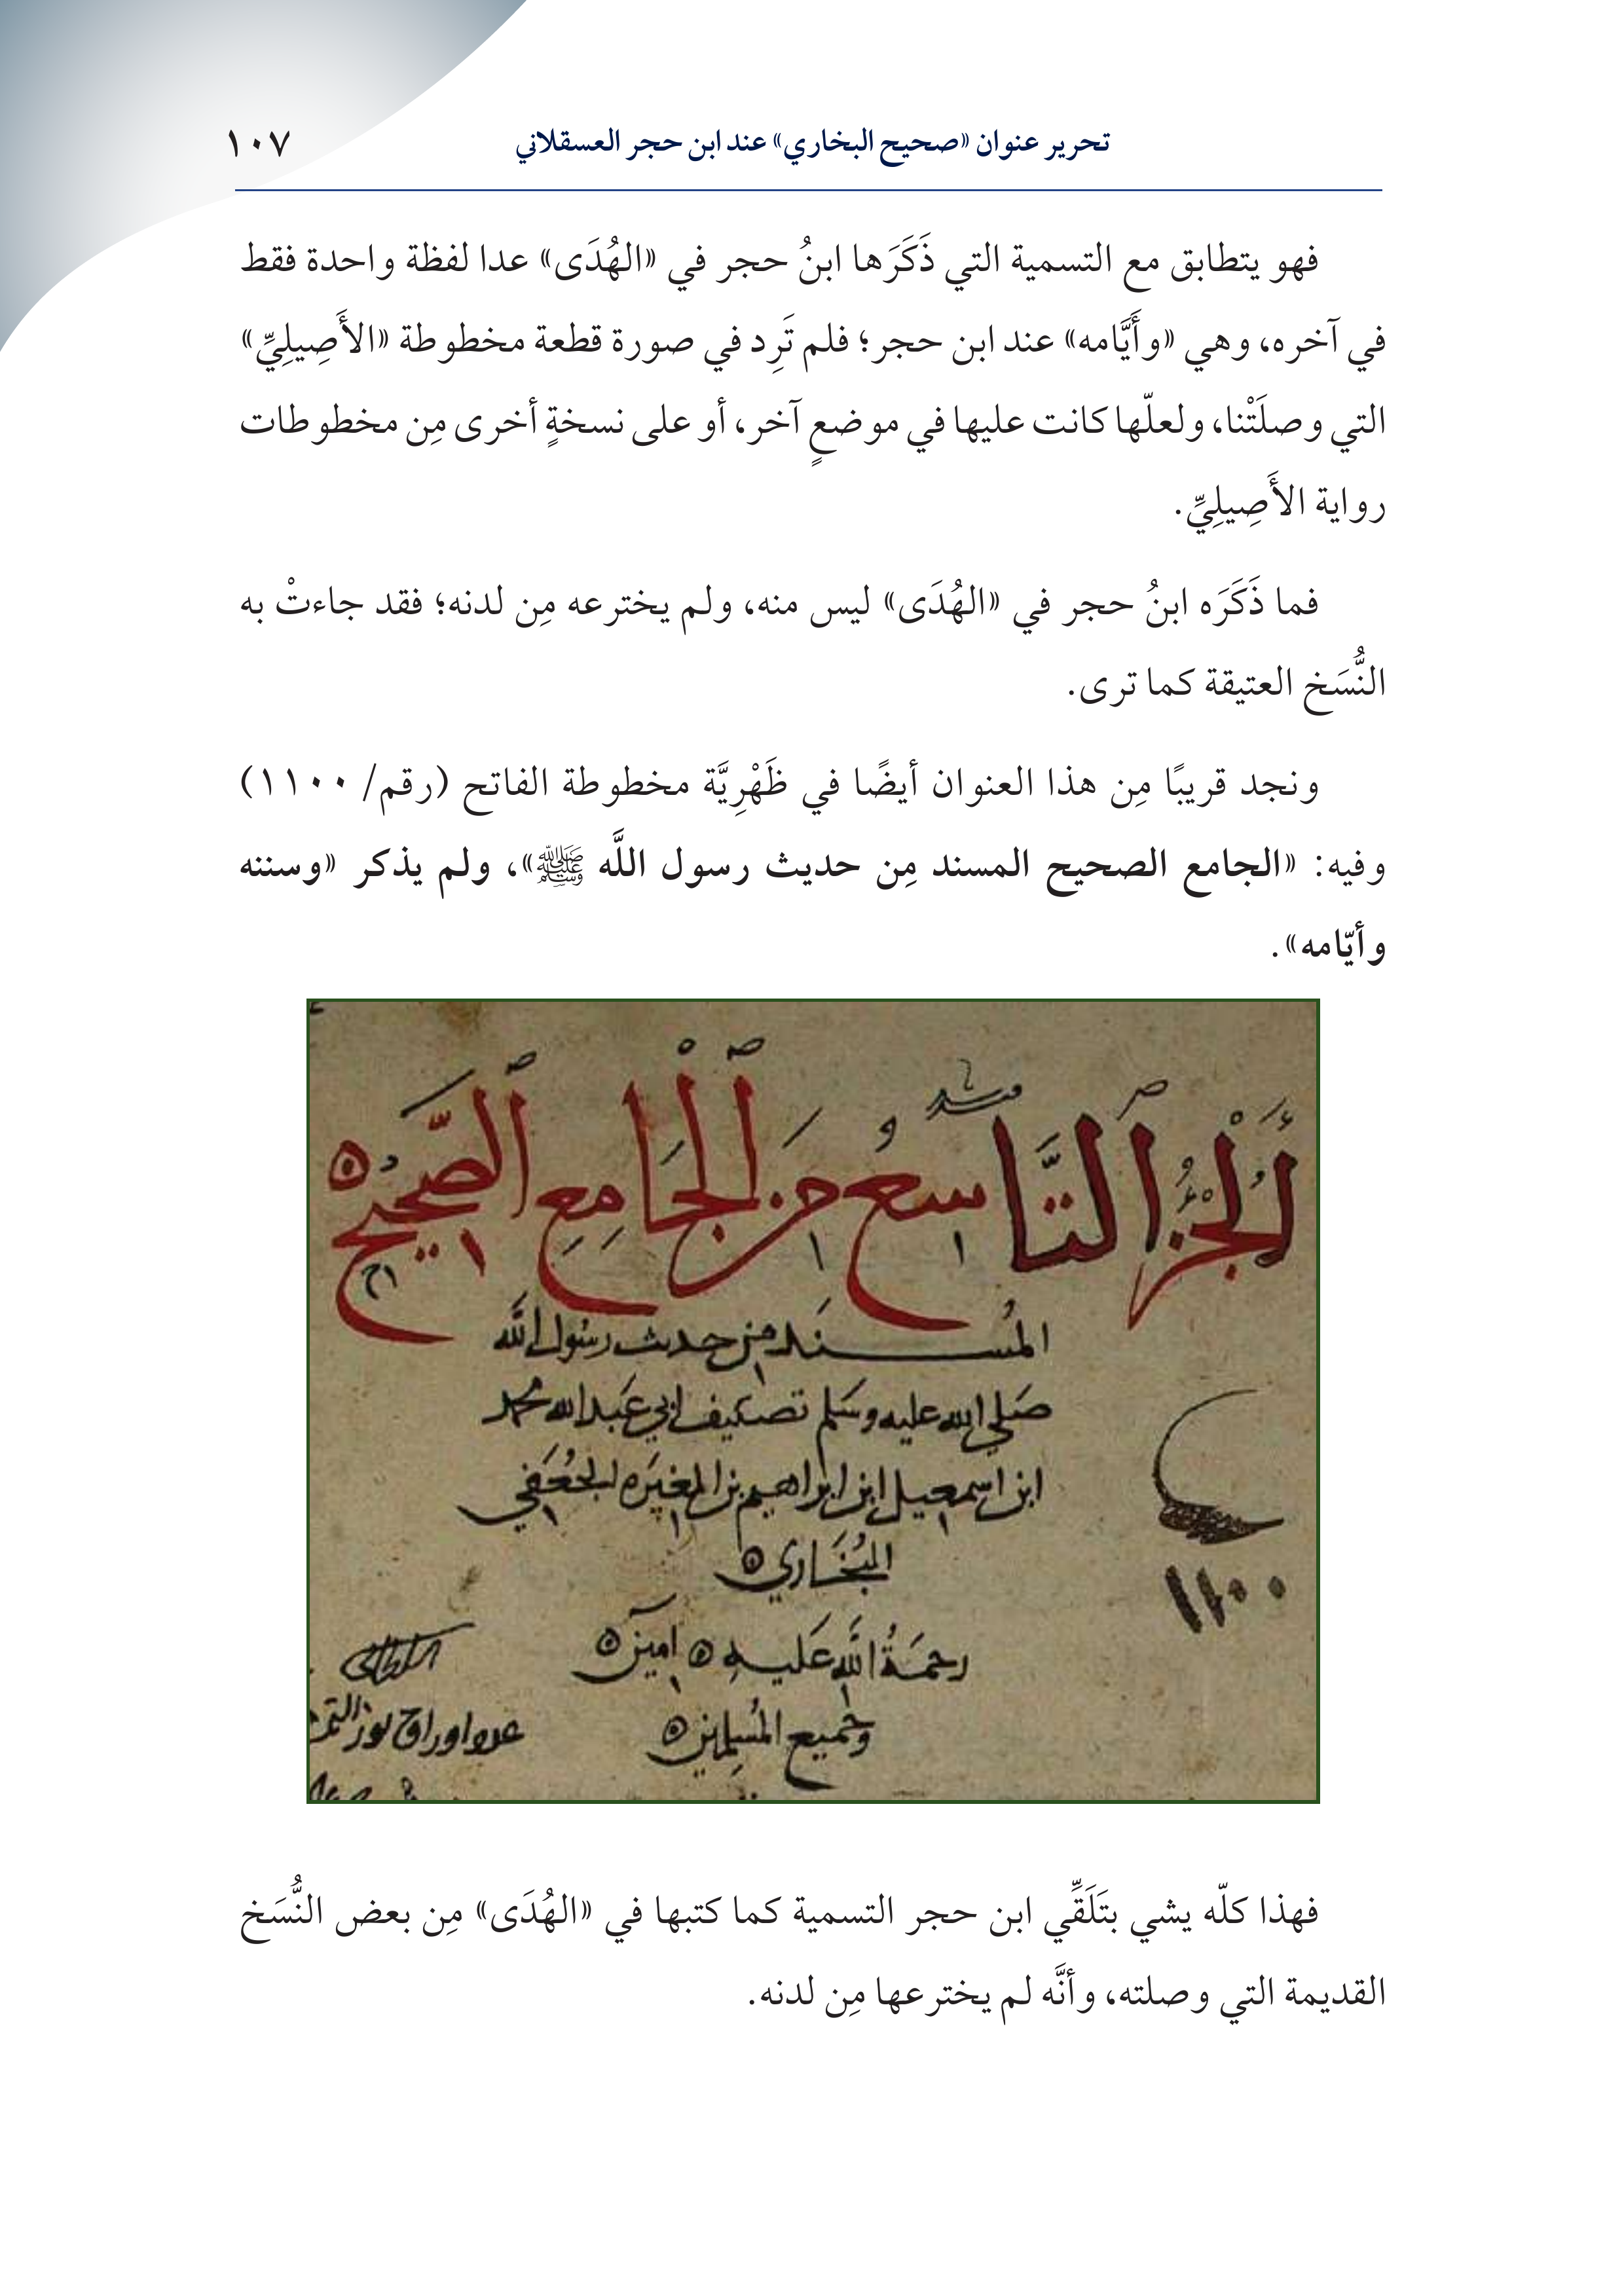 تحرير عنوان «صحيح البخاري» عند ابن حجر العسقلاني
١٠٧
فهو يتطابق مع التسمية التي ذَكَرَها ابنُ حجر في «الهُدَى» عدا لفظة واحدة فقط
في آخره، وهي «وأَيَّامه» عند ابن حجر؛ فلم تَرِد في صورة قطعة مخطوطة «الأَصِيلِيِّ»
التي وصلَتْنا، ولعلّها كانت عليها في موضعٍ آخر، أو على نسخةٍ أخرى مِن مخطوطات
رواية الأَصِيلِيِّ.
فما ذَكَرَه ابنُ حجر في «الهُدَى» ليس منه، ولم يخترعه مِن لدنه؛ فقد جاءتْ به
النُّسَخ العتيقة كما ترى.
ونجد قريبًا مِن هذا العنوان أيضًا في ظَهْرِيَّة مخطوطة الفاتح (رقم/ ١١٠٠)
وفيه: «الجامع الصحيح المسند مِن حديث رسول اللَّه ﷺ»، ولم يذكر «وسننه
وأيّامه».
الجزء التَّاسعُ من الجَامِع الصَّحيح
المُسنَد من حديث رسُول الله
صَلى الله عليه وسَلم تصنيف ابي عَبد الله محمد
ابن اسمعيل ابن ابراهيم بن المغيَره الجُعُفي
البُخَاري
رحمَةُ اللَّه عَليه امين
وجميع المُسلمين
١١٠٠
عدد اوراق
فهذا كلّه يشي بتَلَقِّي ابن حجر التسمية كما كتبها في «الهُدَى» مِن بعض النُّسَخ
القديمة التي وصلته، وأنَّه لم يخترعها مِن لدنه.